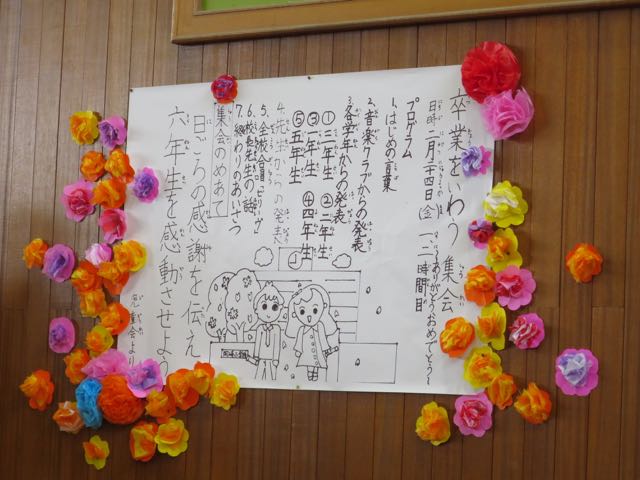 卒業をいわう集会
〜ありがとうおめでとう〜
日時 二月二十四日(金) 一、二時間目
プログラム
1、はじめの言葉
2、音楽クラブからの発表
3、各学年からの発表
①三年生 ②二年生
③一年生 ④四年生
⑤五年生
4、先生からの発表
5、全校合唱
6、校長先生の話
7、終わりのあいさつ
集会のめあて
日ごろの感謝を伝え
六年生を感動させよう
児童会より